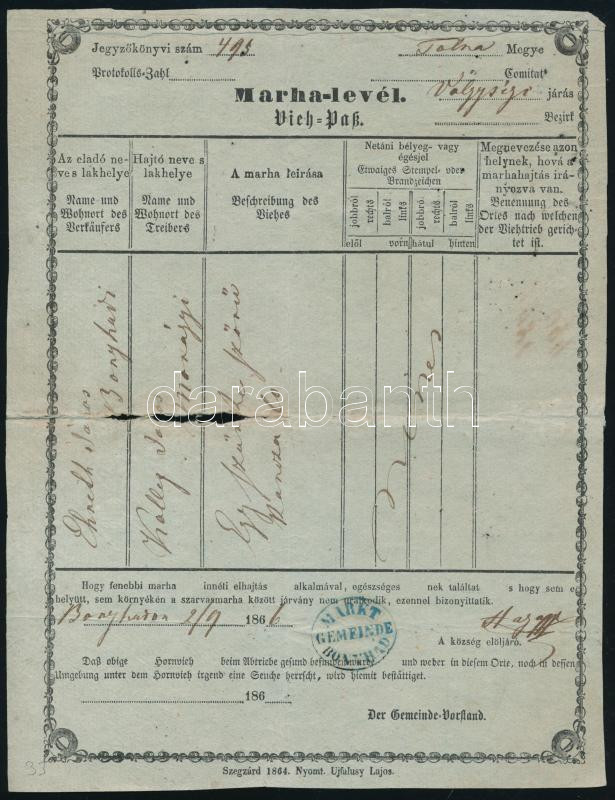 Jegyzőkönyvi szám 495 Tolna Megye
Protokolls-Zahl Comitat
Völgységi járás
Marha-levél.
Vieh-Paß. Bezirk
Az eladó ne-
ve s lakhelye
Name und
Wohnort des
Verkäufers
Hajtó neve s
lakhelye
Name und
Wohnort des
Treibers
A marha leirása
Beschreibung des
Viehes
Netáni bélyeg- vagy
égésjel
Etwaiges Stempel- oder
Brandzeichen
jobbról
rechts
balról
links
jobbró.
rechts
balról
links
elől vorn hátul hinten
Megnevezése azon
helynek, hová a
marhahajtás irá-
nyozva van.
Benennung des
Ortes nach welchen
der Viehtrieb gerich-
tet ist.
János
Bonyhádi
Egy szürke szőrü
Hogy fenebbi marha innéti elhajtás alkalmával, egészséges nek találtat s hogy sem e
helyütt, sem környékén a szarvasmarha között járvány nem uralkodik, ezennel bizonyittatik.
Bonyhádon 2/9 1866
MARKT
GEMEINDE
BONYHAD
A község elöljáró.
Daß obige Hornvieh beim Abtriebe gesund befunden wurde und weder in diesem Orte, noch in dessen
Umgebung unter dem Hornvieh irgend eine Seuche herrscht, wird hiemit bestättiget.
186
Der Gemeinde-Vorstand.
Szegzárd 1864. Nyomt. Ujfalusy Lajos.
darabanth